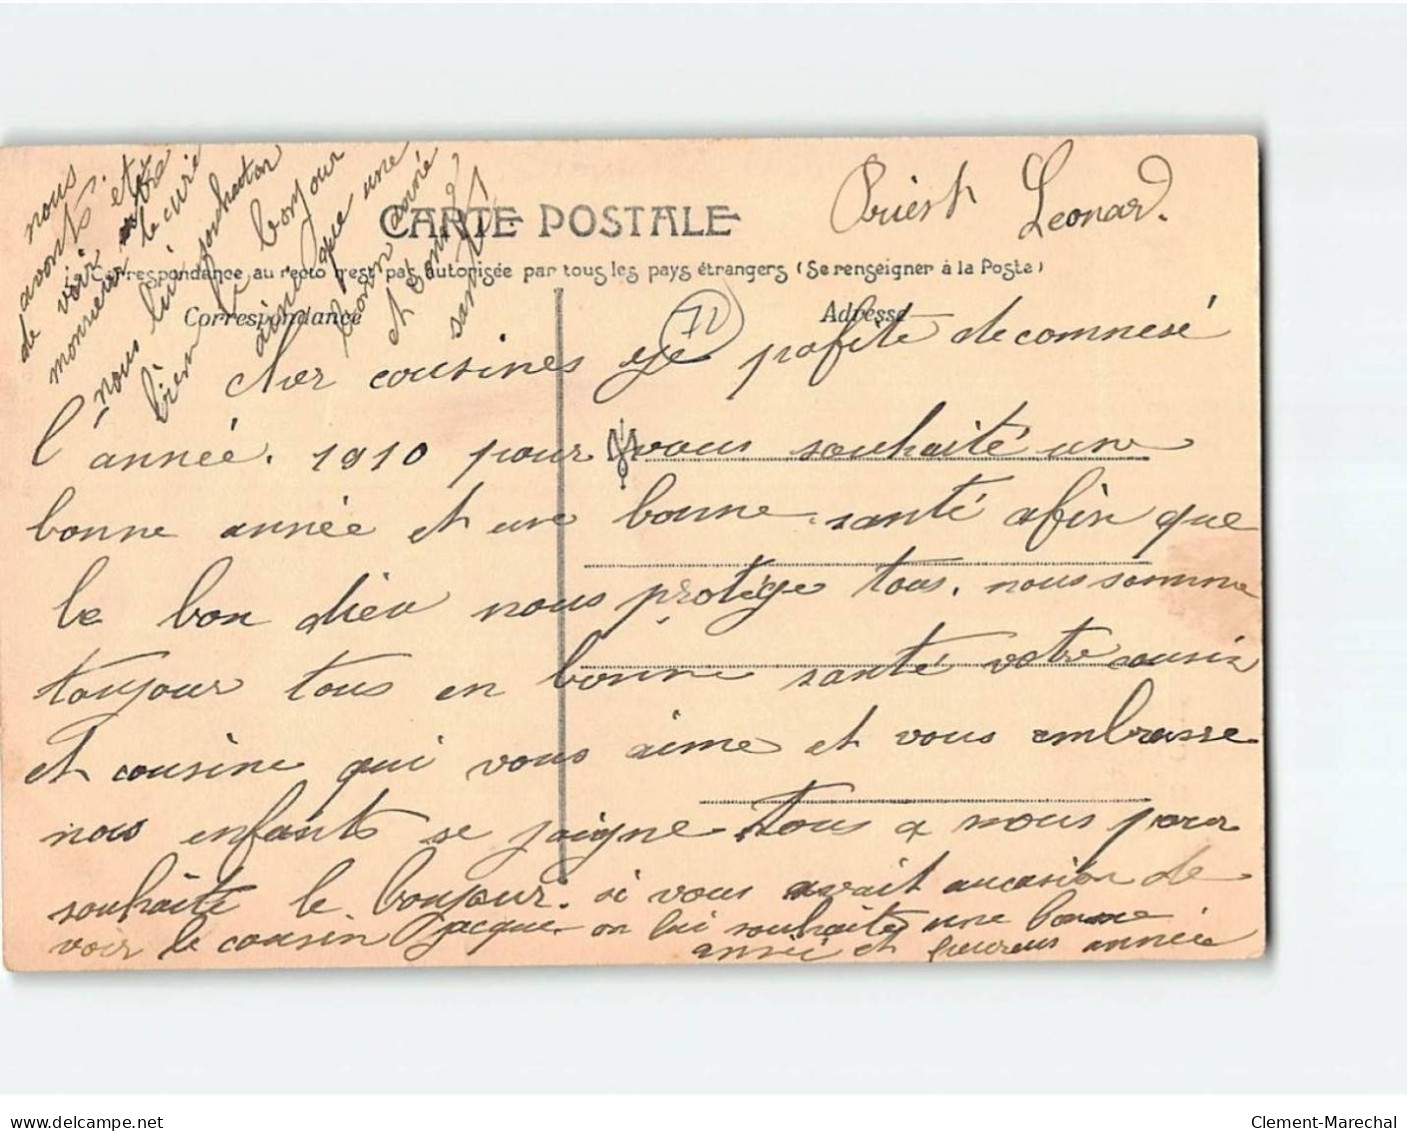 nous
avons été
de voir votre
monsieur le curé
nous lui souhaiton
bien le bonjour
ainci que une
bonn année
et bonne
santé
Leonard.
CARTE POSTALE
Correspondance au recto n'est pas autorisée par tous les pays étrangers (Se renseigner à la Poste)
Correspondance
Adresse
71
cher cousines ge pofite de comnesé
l'année. 1910 pour vous souhaité une
bonne année et une bonne santé afin que
le bon dieu nous protége tous. nous somme
toujour tous en bonne santé votre cousin
et cousine qui vous aime et vous embrasse
nos enfants se joigne tous a nous pour
souhaite le bonjour. si vous avait aucasion de
voir le cousin Jacque on lui souhaite une bonne
année et heureus année
Clement-Marechal
www.delcampe.net